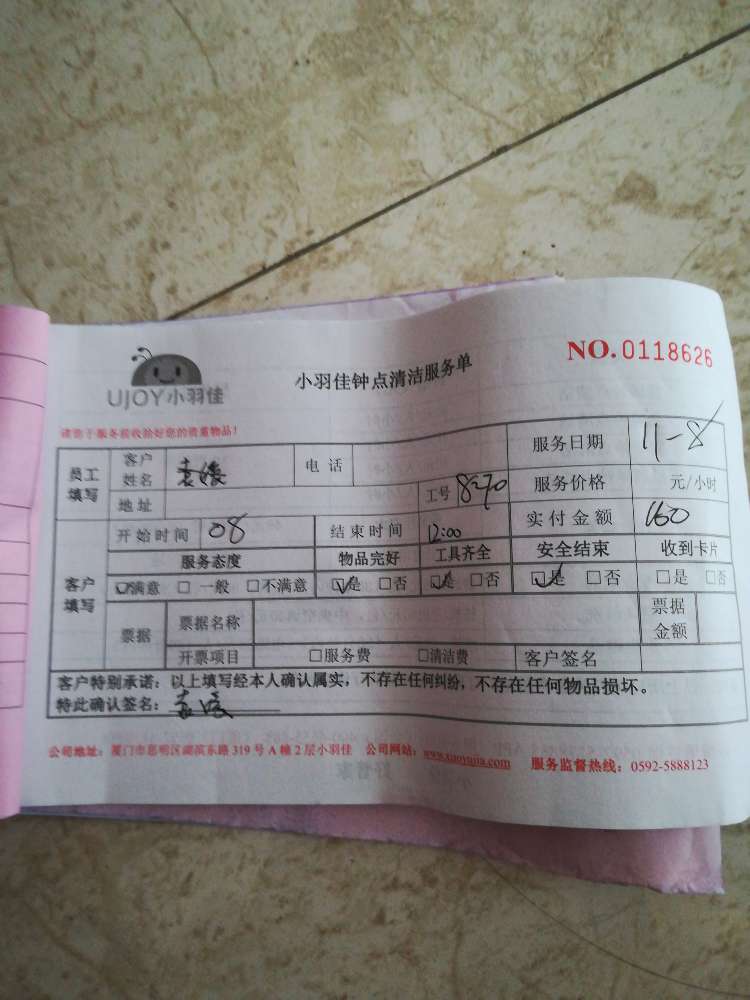 UJOY小羽佳
小羽佳钟点清洁服务单
NO.0118626
请您于服务前收拾好您的贵重物品！
员工填写 客户姓名 电话 服务日期 11-8
地址 工号 8270 服务价格 元/小时
开始时间 08 结束时间 12:00 实付金额 160
客户填写 服务态度 物品完好 工具齐全 安全结束 收到卡片
☑满意 □一般 □不满意 ☑是 □否 ☑是 □否 ☑是 □否 □是 □否
票据 票据名称 票据金额
开票项目 □服务费 □清洁费 客户签名
客户特别承诺：以上填写经本人确认属实，不存在任何纠纷，不存在任何物品损坏。
特此确认签名：
公司地址：厦门市思明区湖滨东路319号A幢2层小羽佳 公司网站：www.xiaoyujia.com 服务监督热线：0592-5888123